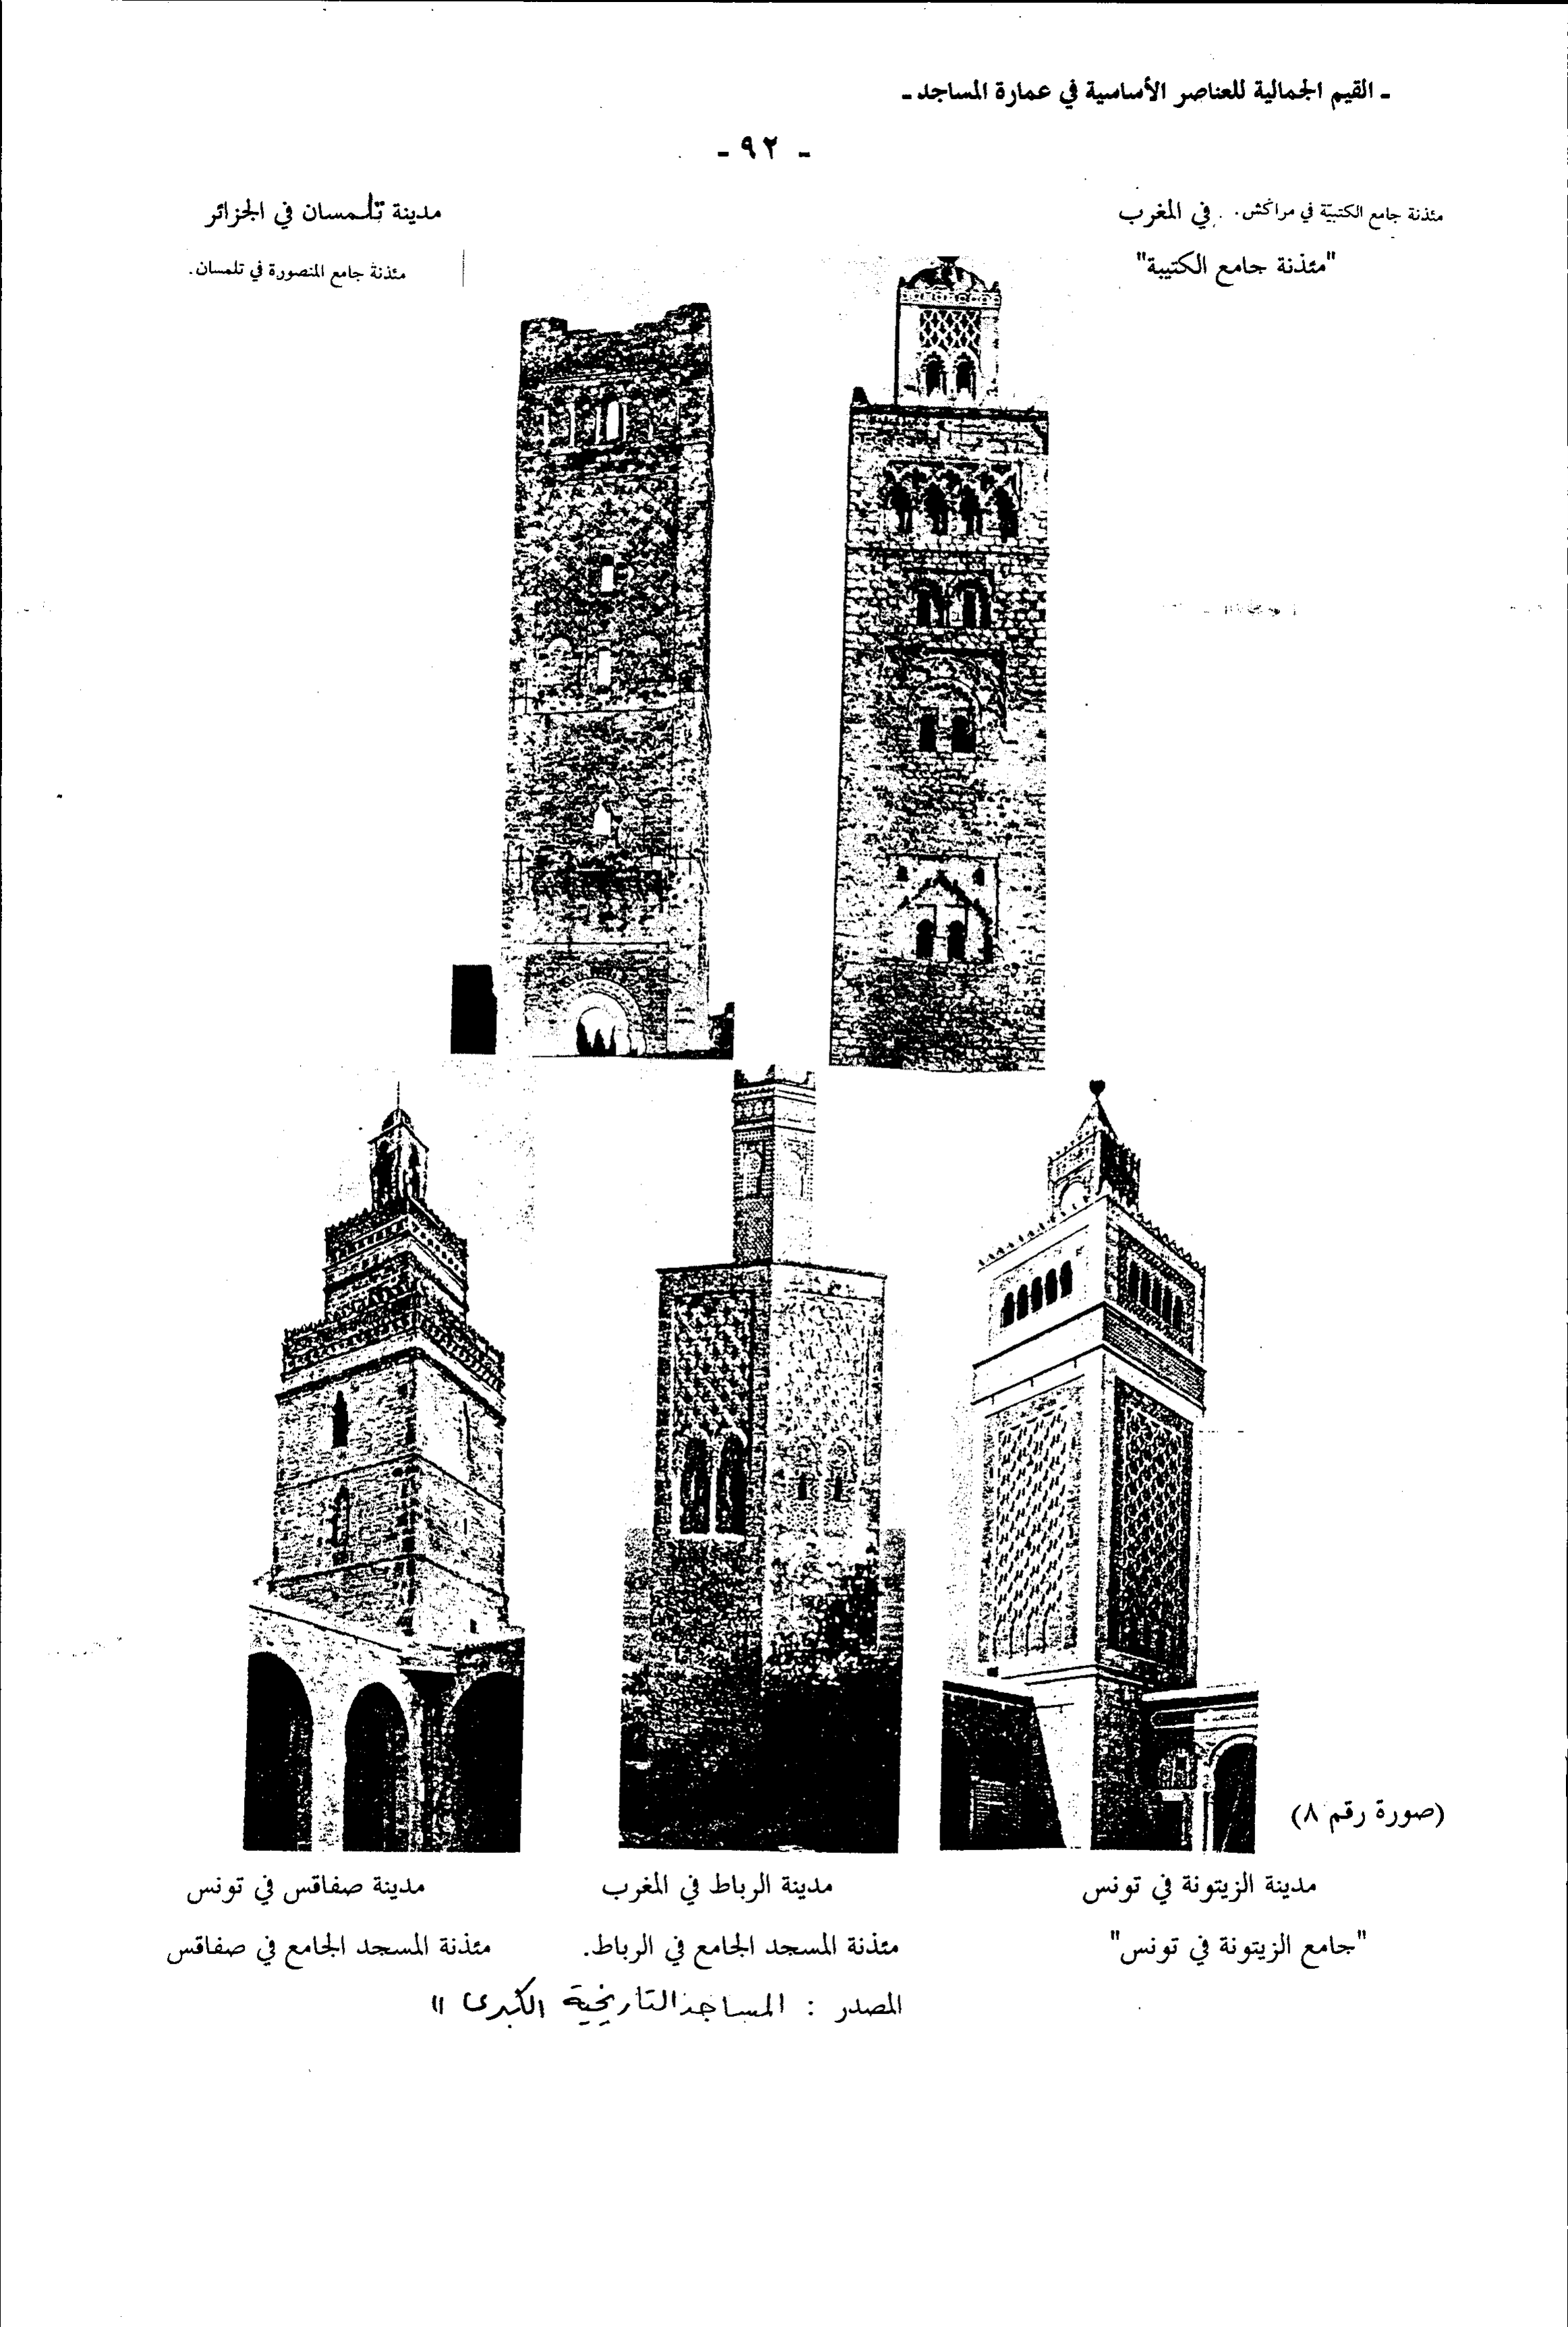 ـ القيم الجمالية للعناصر الأساسية في عمارة المساجد ـ
- ٩٢ -
مئذنة جامع الكتبيّة في مراكش. في المغرب
"مئذنة جامع الكتيبة"
مدينة تلمسان في الجزائر
مئذنة جامع المنصورة في تلمسان.
(صورة رقم ٨)
مدينة الزيتونة في تونس
"جامع الزيتونة في تونس"
مدينة الرباط في المغرب
مئذنة المسجد الجامع في الرباط.
مدينة صفاقس في تونس
مئذنة المسجد الجامع في صفاقس
المصدر : المساجد التاريخية الكبرى "